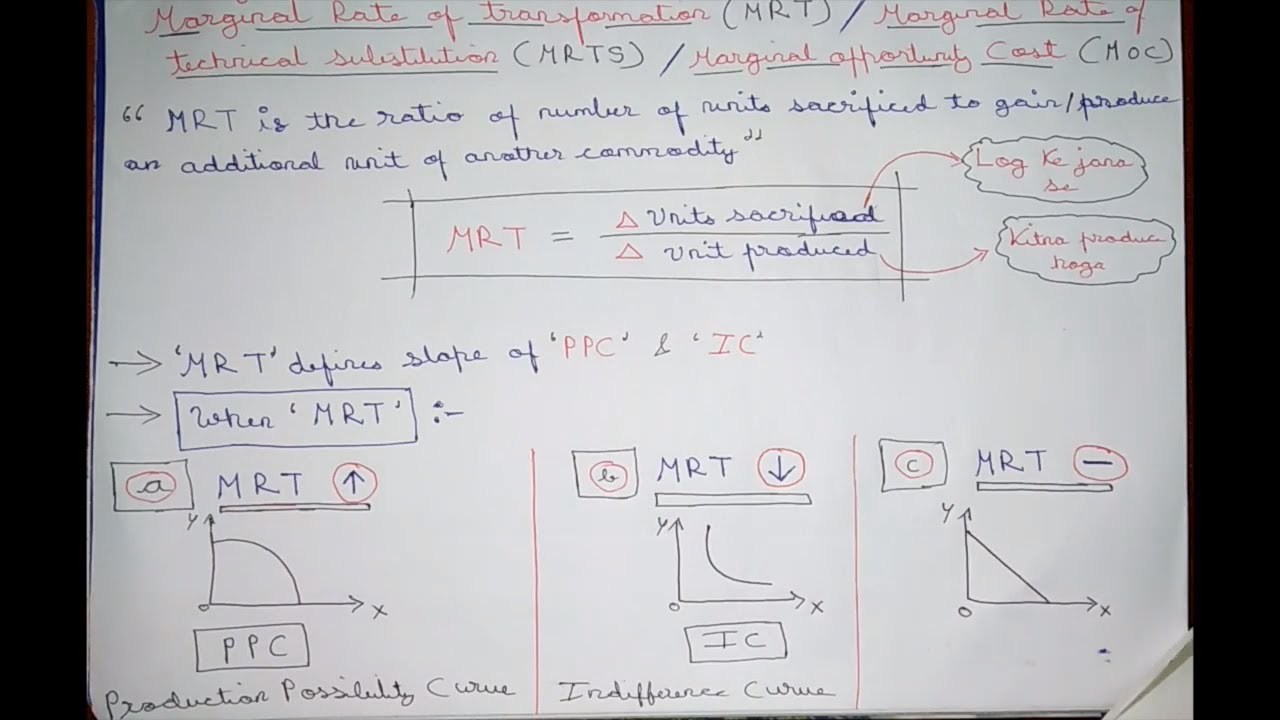 Marginal Rate of transformation (MRT) / Marginal Rate of
technical substitution (MRTS) / Marginal opportunity Cost (MOC)
“ MRT is the ratio of number of units sacrificed to gain/produce
an additional unit of another commodity”
MRT = Δ Units sacrificed / Δ Unit produced
Log Ke jana
se
Kitna produce
hoga
→ ‘MRT’ defines slope of ‘PPC’ & ‘IC’
→ When ‘MRT’ :-
a MRT ↑
b MRT ↓
c MRT –
Y
O
X
Y
O
X
Y
O
X
PPC
IC
Production Possibility Curve
Indifference Curve